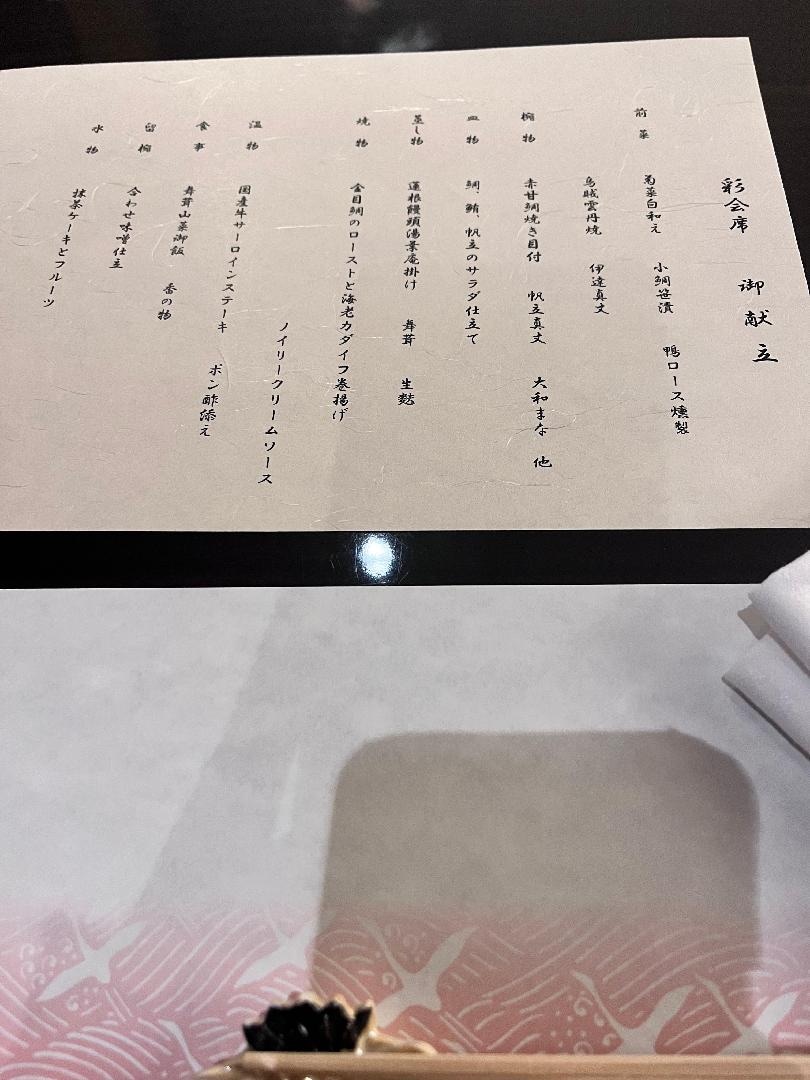 彩会席 御献立
前菜
菊菜白和え 小鯛笹漬 鴨ロース燻製
烏賊雲丹焼 伊達真丈
椀物
赤甘鯛焼き目付 帆立真丈 大和まな 他
皿物
鯛、鮪、帆立のサラダ仕立て
蒸し物
蓮根饅頭湯葉庵掛け 舞茸 生麩
焼物
金目鯛のローストと海老カダイフ巻揚げ
ノイリークリームソース
温物
国産牛サーロインステーキ
ポン酢添え
食事
舞茸山菜御飯
香の物
留椀
合わせ味噌仕立
水物
抹茶ケーキとフルーツ